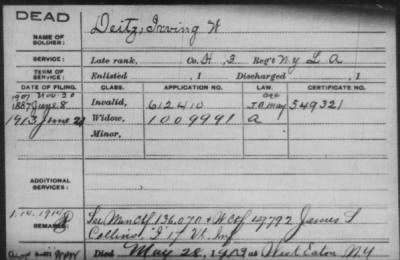 DEAD
NAME OF SOLDIER: Deitz, Irving W
SERVICE: Late rank, Co. H, 3 Reg't N.Y. L A
TERM OF SERVICE: Enlisted , 1 Discharged , 1
DATE OF FILING. CLASS. APPLICATION NO. LAW. CERTIFICATE NO.
1907 Nov. 20 age
1887 8 Invalid, 612410 549321
1913 June 21 Widow, 1009991 a
Minor,
ADDITIONAL SERVICES:
1.14.1914
REMARKS: See Min Ctf 136,070 + W Ctf 49792 James S
Collins, I 17 Vt. Inf
Died May 28, 1913 at West Eaton N.Y